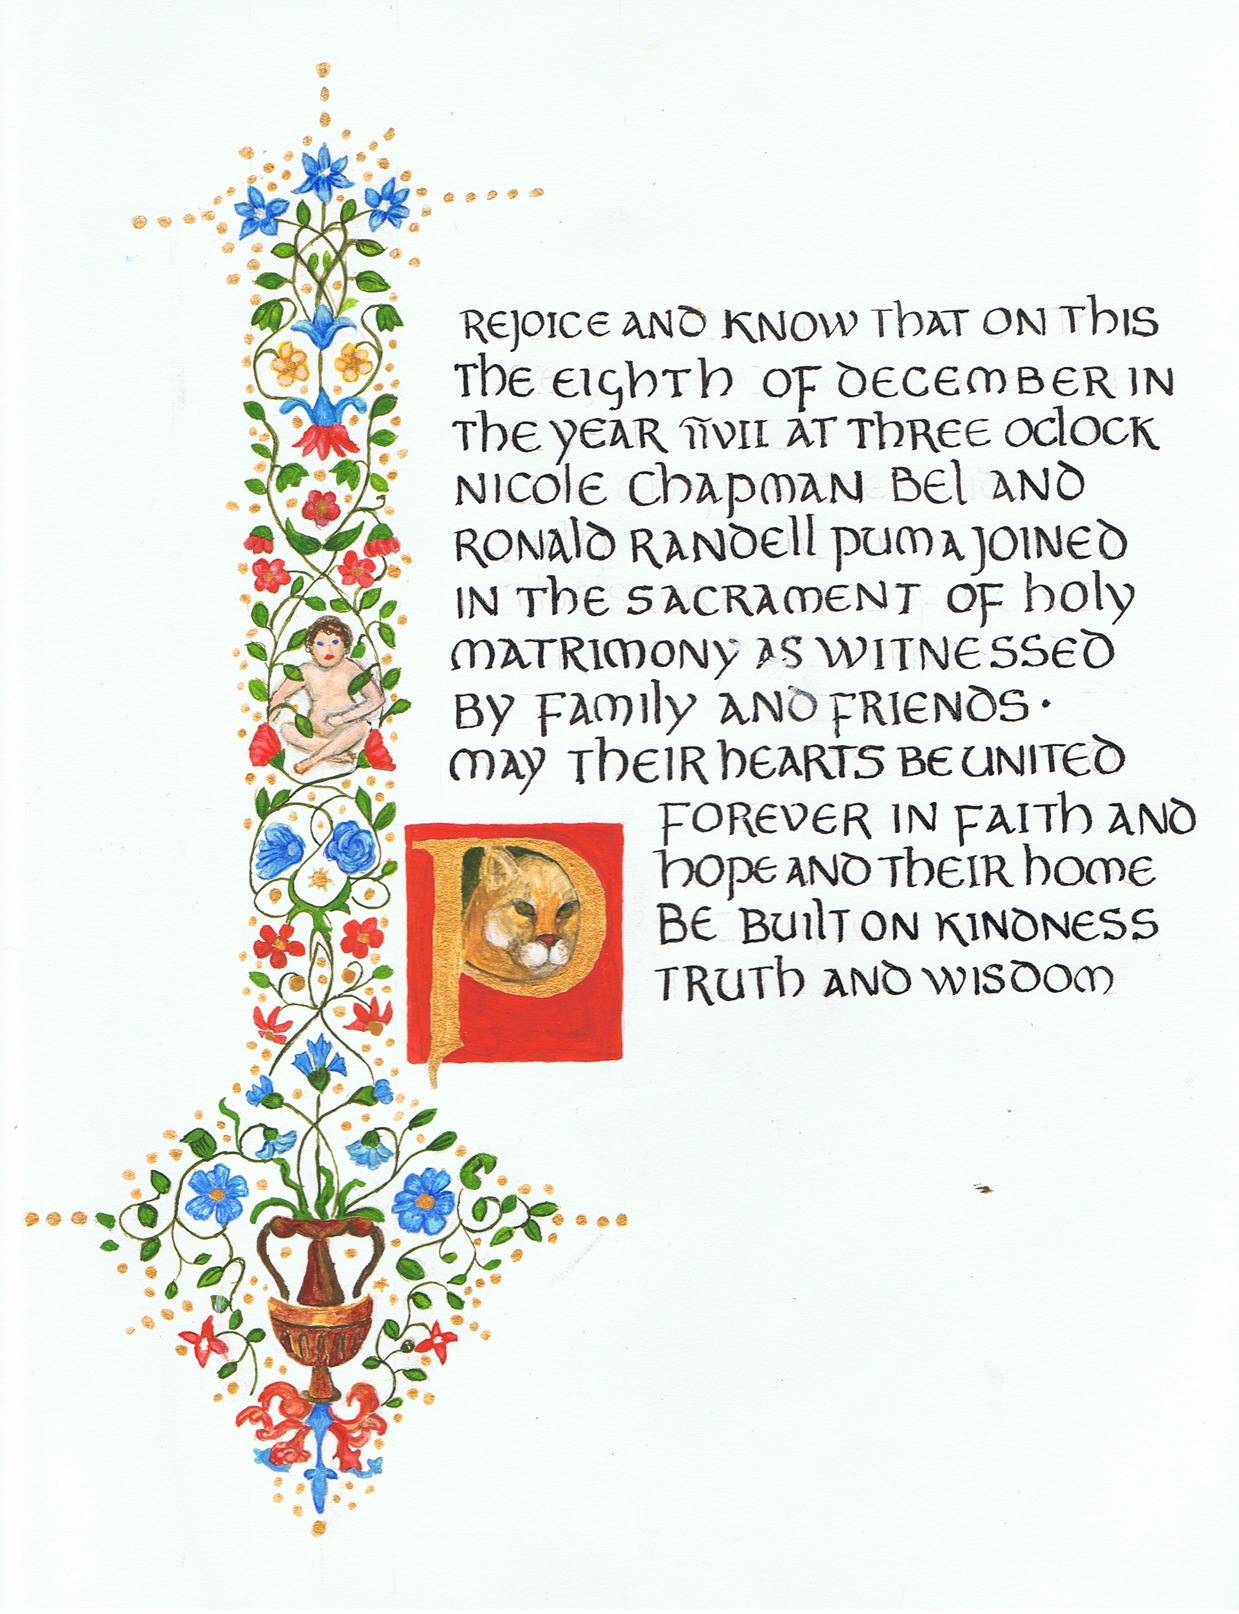 REJOICE AND KNOW THAT ON THIS
THE EIGHTH OF DECEMBER IN
THE YEAR ĪĪVII AT THREE OCLOCK
NICOLE CHAPMAN BEL AND
RONALD RANDELL PUMA JOINED
IN THE SACRAMENT OF HOLY
MATRIMONY AS WITNESSED
BY FAMILY AND FRIENDS ·
MAY THEIR HEARTS BE UNITED
FOREVER IN FAITH AND
HOPE AND THEIR HOME
BE BUILT ON KINDNESS
TRUTH AND WISDOM
P